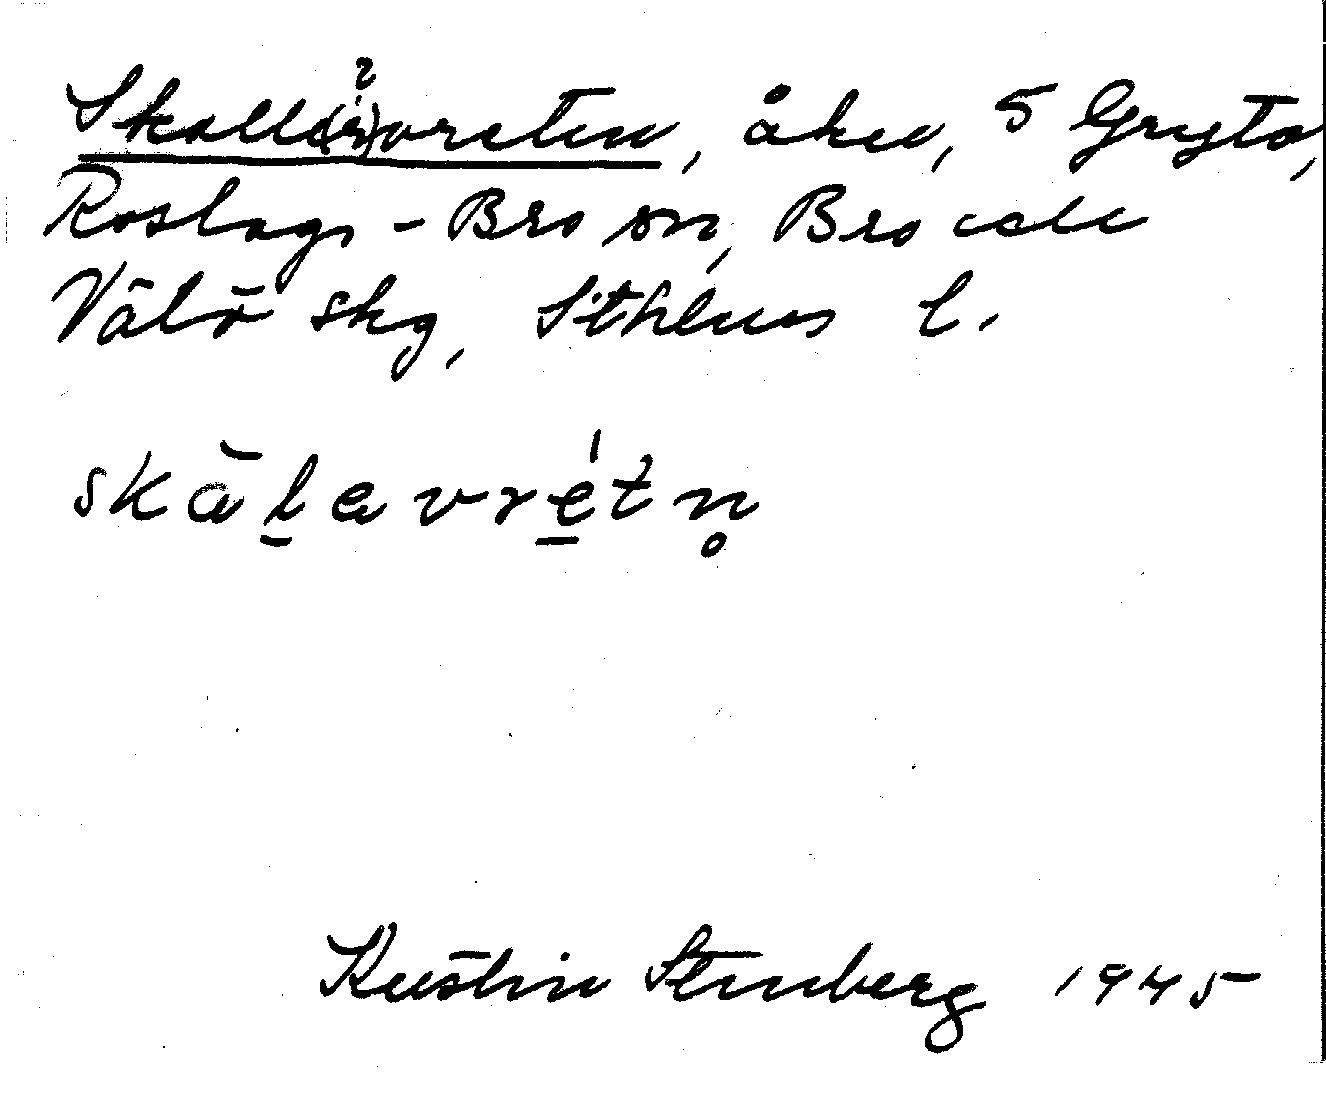 Skalla(r?)vreten, åker, 5 Gryta,
Roslags-Bro sn, Bro och
Vätö skg, Sthlms l.
skàlavrétn̥
Kerstin Stenberg 1945